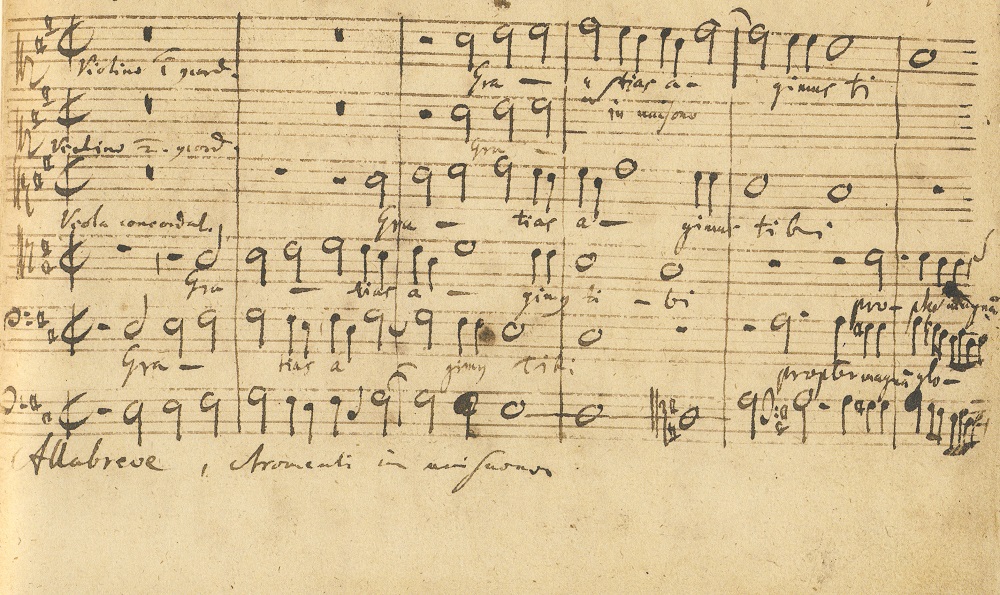 Violino 1 gard.
Gra - tias a - gimus ti
in unisono
Violino 2. gard.
Gra -
Viola concordat.
Gra - tias a - gimus tibi
Gra - tias a - gimus ti - bi
pro - pter magnam
Gra - tias a gimus Tibi
propter magna glo -
Allabreve, stromenti in unisono